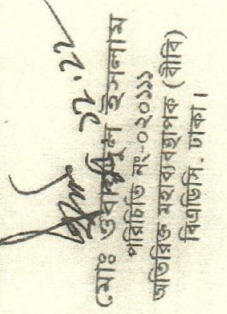 ১২.২২
মোঃ ওবায়দুল ইসলাম
পরিচিতি নং-০২০১১১
অতিরিক্ত মহাব্যবস্থাপক (বীবি)
বিএডিসি. ঢাকা।